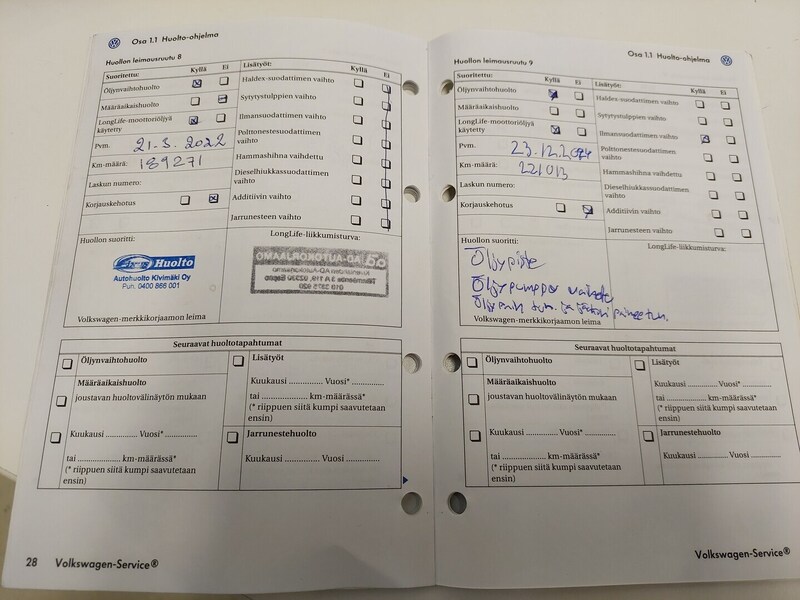 Osa 1.1 Huolto-ohjelma
Huollon leimausruutu 8
Suoritettu: Kyllä Ei
Öljynvaihtohuolto
Määräaikaishuolto
LongLife-moottoriöljyä
käytetty
Pvm. 21.3.2022
Km-määrä: 189271
Laskun numero:
Korjauskehotus
Lisätyöt: Kyllä Ei
Haldex-suodattimen vaihto
Sytytystulppien vaihto
Ilmansuodattimen vaihto
Polttonestesuodattimen
vaihto
Hammashihna vaihdettu
Dieselhiukkassuodattimen
vaihto
Additiivin vaihto
Jarrunesteen vaihto
Huollon suoritti:
Huolto
Autohuolto Kivimäki Oy
Puh. 0400 866 001
Volkswagen-merkkikorjaamon leima
LongLife-liikkumisturva:
AD-AUTOKORJAAMO
Seuraavat huoltotapahtumat
Öljynvaihtohuolto
Määräaikaishuolto
joustavan huoltovälinäytön mukaan
Kuukausi ............... Vuosi* ...............
tai .................... km-määrässä*
(* riippuen siitä kumpi saavutetaan
ensin)
Lisätyöt
Kuukausi ............ Vuosi* ............
tai .................... km-määrässä*
(* riippuen siitä kumpi saavutetaan
ensin)
Jarrunestehuolto
Kuukausi ............ Vuosi ............
28 Volkswagen-Service®
Osa 1.1 Huolto-ohjelma
Huollon leimausruutu 9
Suoritettu: Kyllä Ei
Öljynvaihtohuolto
Määräaikaishuolto
LongLife-moottoriöljyä
käytetty
Pvm. 23.12.2024
Km-määrä: 221013
Laskun numero:
Korjauskehotus
Lisätyöt: Kyllä Ei
Haldex-suodattimen vaihto
Sytytystulppien vaihto
Ilmansuodattimen vaihto
Polttonestesuodattimen
vaihto
Hammashihna vaihdettu
Dieselhiukkassuodattimen
vaihto
Additiivin vaihto
Jarrunesteen vaihto
Huollon suoritti:
Öljypiste
Öljypumppu
Volkswagen-merkkikorjaamon leima
LongLife-liikkumisturva:
Seuraavat huoltotapahtumat
Öljynvaihtohuolto
Määräaikaishuolto
joustavan huoltovälinäytön mukaan
Kuukausi ............... Vuosi* ...............
tai .................... km-määrässä*
(* riippuen siitä kumpi saavutetaan
ensin)
Lisätyöt
Kuukausi ............ Vuosi* ............
tai .................... km-määrässä*
(* riippuen siitä kumpi saavutetaan
ensin)
Jarrunestehuolto
Kuukausi ............ Vuosi ............
Volkswagen-Service®